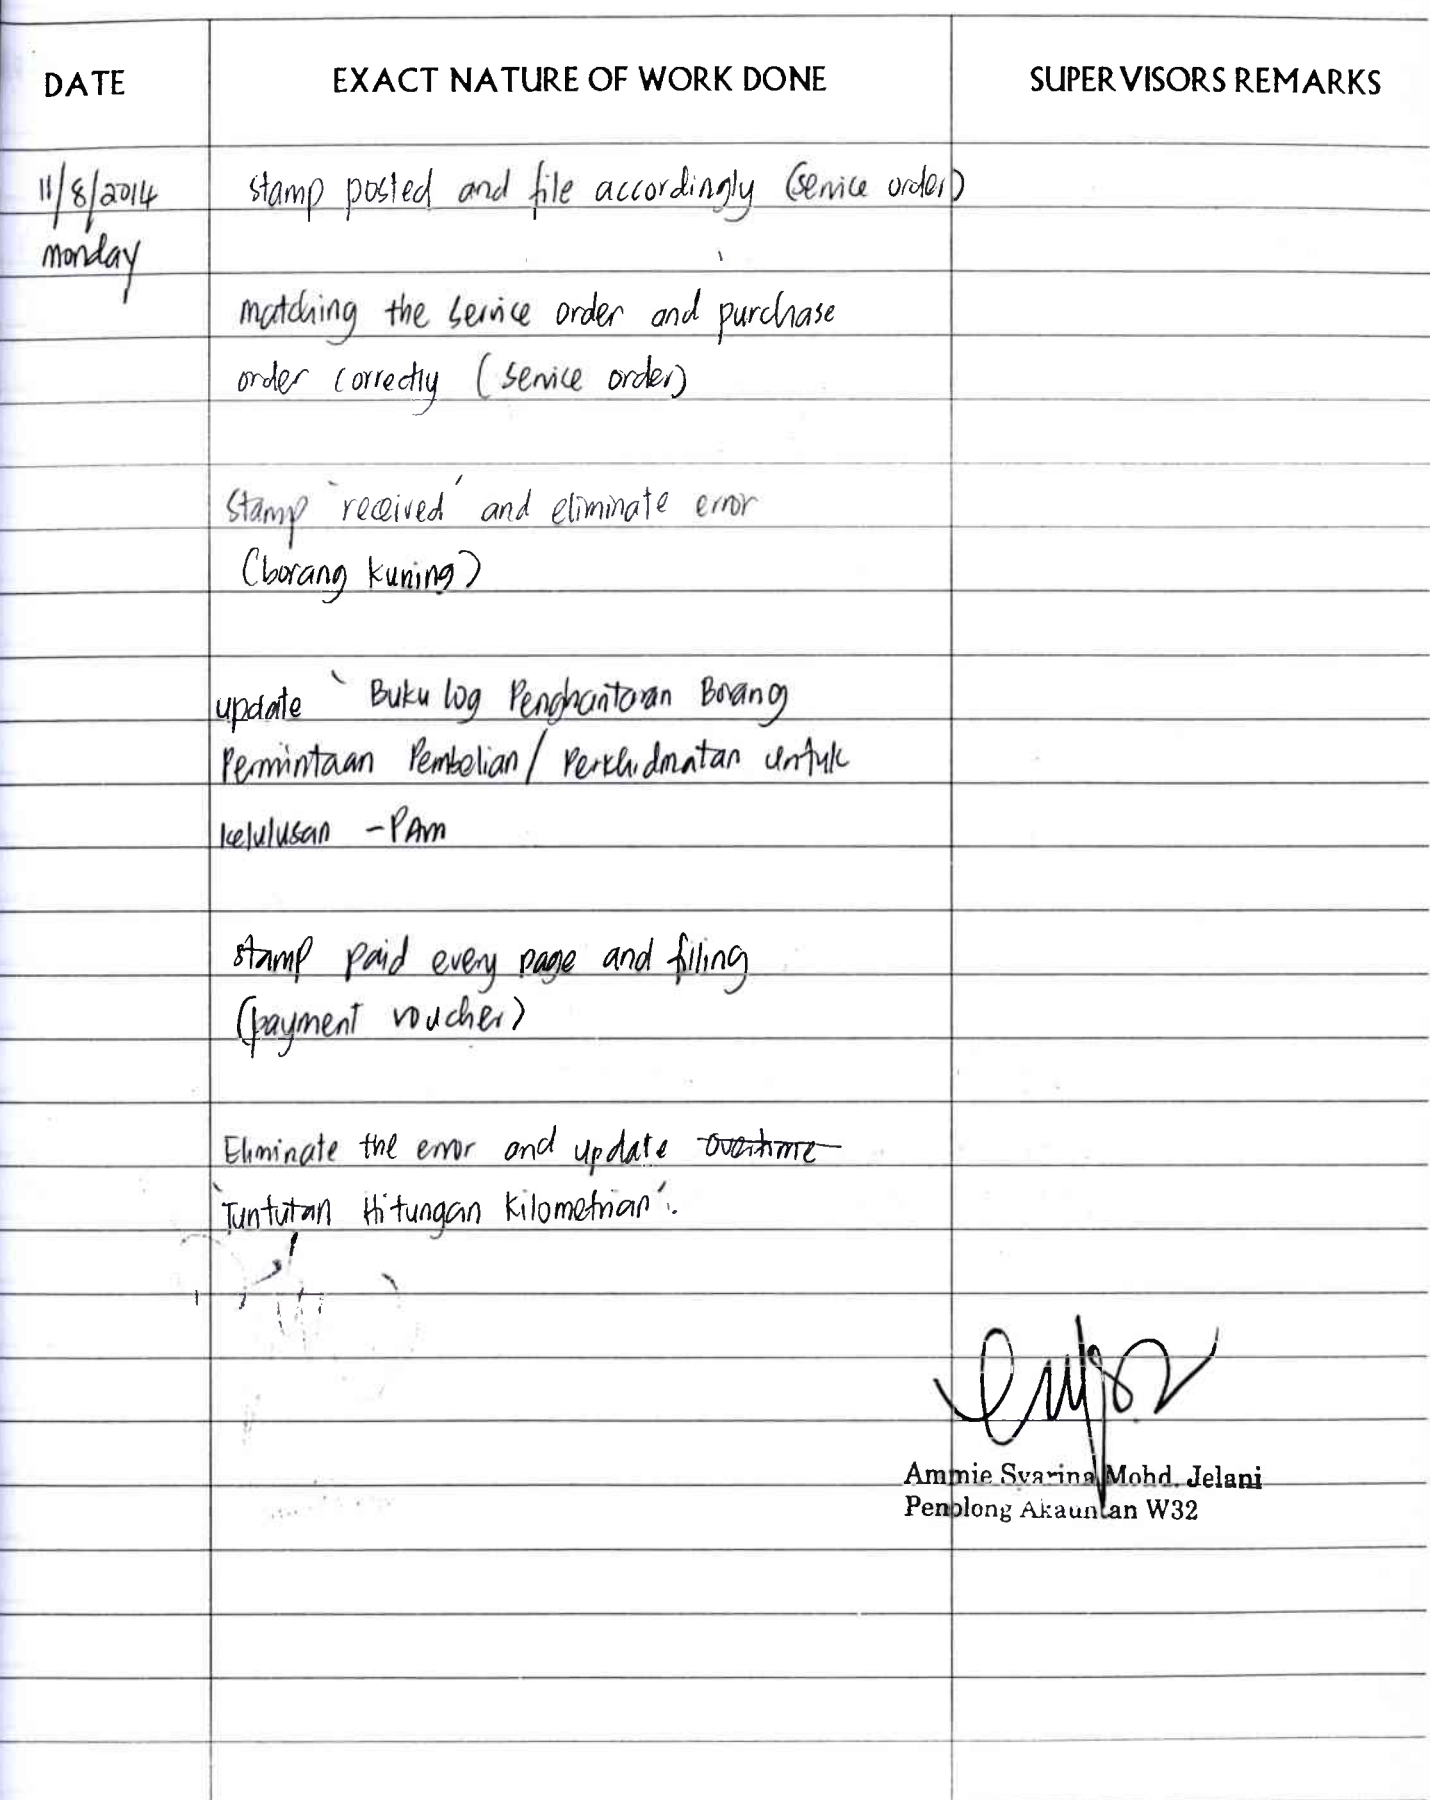 DATE EXACT NATURE OF WORK DONE SUPERVISORS REMARKS
11/8/2014 stamp posted and file accordingly (service order)
monday
matching the service order and purchase
order correctly (service order)
stamp `received´ and eliminate error
(borang kuning)
update ` Buku log Penghantaran Borang
Permintaan Pembelian/ Perkhidmatan untuk
kelulusan - PAM
stamp paid every page and filing
(payment voucher)
Eliminate the error and update overtime
`Tuntutan Hitungan Kilometrian´.
Ammie Syarina Mohd. Jelani
Penolong Akauntan W32